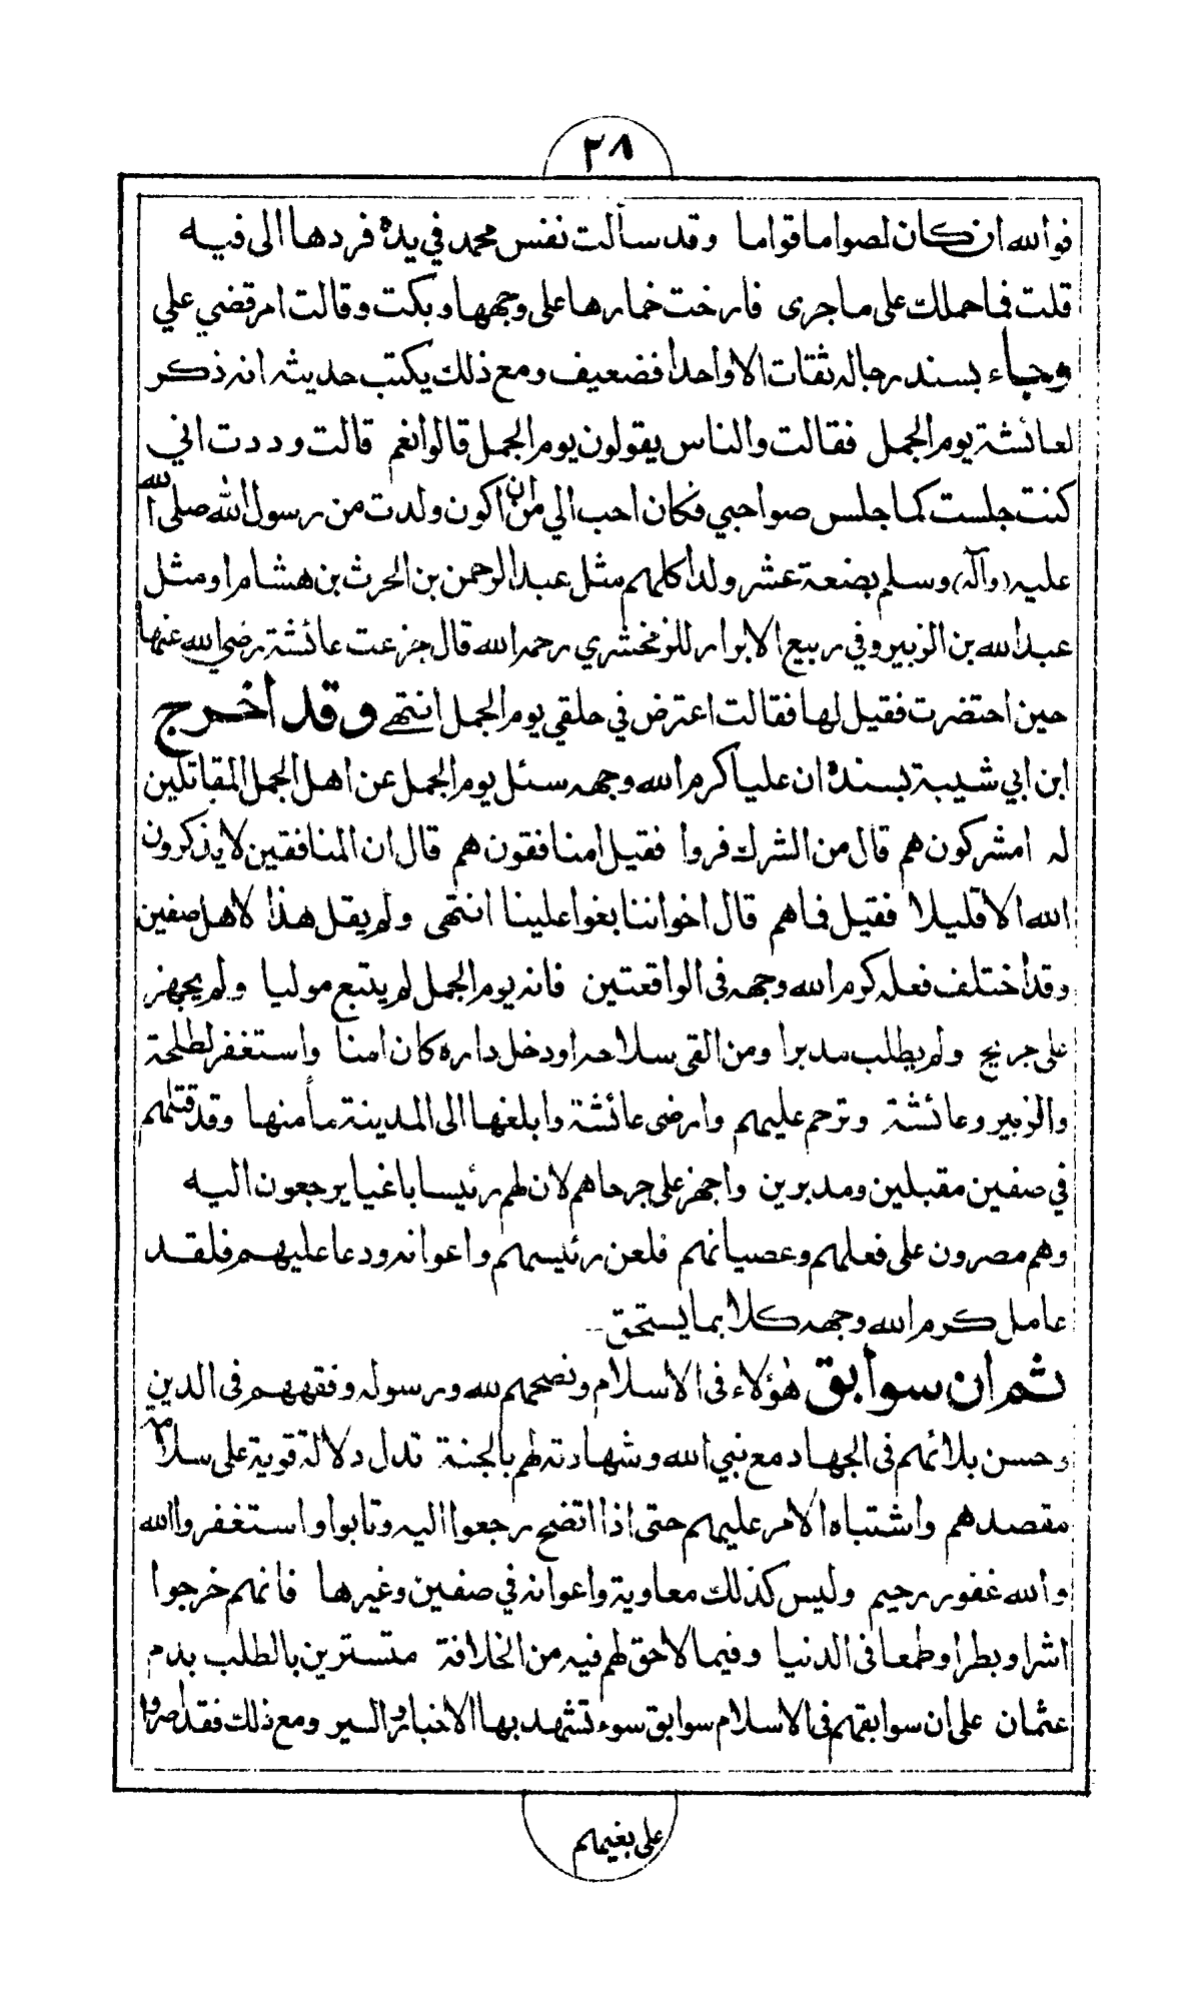 ٢٨
فوالله ان كان لصواما قواما وقد سألت نفس محمد في يده فردها الى فيه
قلت فما حملك على ما جرى فارخت خمارها على وجهها وبكت وقالت امر قضي علي
وجاء بسند رجاله ثقات الا واحدا فضعيف ومع ذلك يكتب حديثه انه ذكر
لعائشة يوم الجمل فقالت والناس يقولون يوم الجمل قالوا نعم قالت وددت اني
كنت جلست كما جلس صواحبي فكان احب الي من ان اكون ولدت من رسول الله صلى الله
عليه (وآله) وسلم بضعة عشر ولدا كلهم مثل عبد الرحمن بن الحرث بن هشام او مثل
عبد الله بن الزبير وفي ربيع الابرار للزمخشري رحمه الله قال جزعت عائشة رضي الله عنها
حين احتضرت فقيل لها فقالت اعترض في حلقي يوم الجمل انتهى وقد اخرج
ابن ابي شيبة بسنده ان عليا كرم الله وجهه سئل يوم الجمل عن اهل الجمل المقاتلين
له امشركون هم قال من الشرك فروا فقيل امنافقون هم قال ان المنافقين لا يذكرون
الله الا قليلا فقيل فما هم قال اخواننا بغوا علينا انتهى ولم يقل هذا لاهل صفين
وقد اختلف فعله كرم الله وجهه في الواقعتين فانه يوم الجمل لم يتبع موليا ولم يجهز
على جريح ولم يطلب مدبرا ومن القى سلاحه او دخل داره كان امنا واستغفر لطلحة
والزبير وعائشة وترحم عليهم وارضى عائشة وابلغها الى المدينة مأمنها وقد قتلهم
في صفين مقبلين ومدبرين واجهز على جرحاهم لان لهم رئيسا باغيا يرجعون اليه
وهم مصرون على فعلهم وعصيانهم فلعن رئيسهم واعوانه ودعا عليهم فلقد
عامل كرم الله وجهه كلا بما يستحق ..
ثم ان سوابق هؤلاء في الاسلام ونصحهم لله ورسوله وفقههم في الدين
وحسن بلائهم في الجهاد مع نبي الله وشهادته لهم بالجنة تدل دلالة قوية على سلامة
مقصدهم واشتباه الامر عليهم حتى اذا اتضح رجعوا اليه وتابوا واستغفروا الله
والله غفور رحيم وليس كذلك معاوية واعوانه في صفين وغيرها فانهم خرجوا
اشرا وبطرا وطمعا في الدنيا وفيما لا حق لهم فيه من الخلافة متسترين بالطلب بدم
عثمان على ان سوابقهم في الاسلام سوابق سوء تشهد بها الاخبار والسير ومع ذلك فقد اصروا
على بغيهم